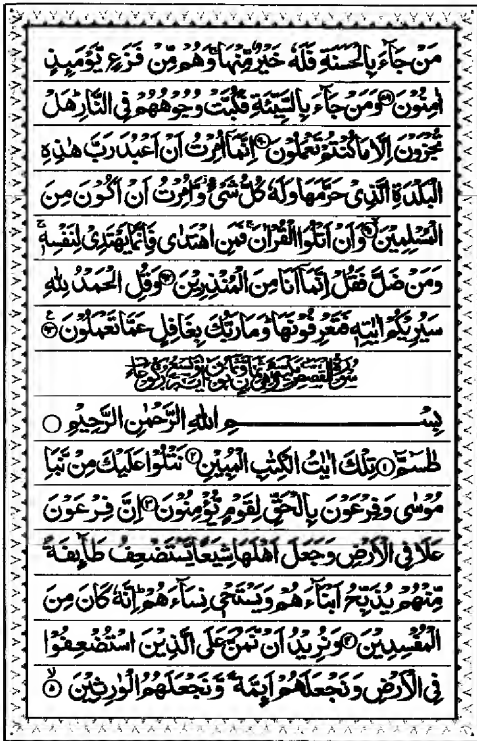 مَنْ جَآءَ بِالْحَسَنَةِ فَلَهٗ خَيْرٌ مِّنْهَا ۚ وَهُمْ مِّنْ فَزَعٍ يَّوْمَىِٕذٍ
اٰمِنُوْنَ ﴿۸۹﴾ وَمَنْ جَآءَ بِالسَّيِّئَةِ فَكُبَّتْ وُجُوْهُهُمْ فِى النَّارِ ؕ هَلْ
تُجْزَوْنَ اِلَّا مَا كُنْتُمْ تَعْمَلُوْنَ ﴿۹۰﴾ اِنَّمَآ اُمِرْتُ اَنْ اَعْبُدَ رَبَّ هٰذِهِ
الْبَلْدَةِ الَّذِىْ حَرَّمَهَا وَلَهٗ كُلُّ شَىْءٍ ؗ وَّاُمِرْتُ اَنْ اَكُوْنَ مِنَ
الْمُسْلِمِيْنَ ﴿۹۱﴾ وَاَنْ اَتْلُوَا الْقُرْاٰنَ ۚ فَمَنِ اهْتَدٰى فَاِنَّمَا يَهْتَدِىْ لِنَفْسِهٖ ۚ
وَمَنْ ضَلَّ فَقُلْ اِنَّمَآ اَنَا مِنَ الْمُنْذِرِيْنَ ﴿۹۲﴾ وَقُلِ الْحَمْدُ لِلّٰهِ
سَيُرِيْكُمْ اٰيٰتِهٖ فَتَعْرِفُوْنَهَا ؕ وَمَا رَبُّكَ بِغَافِلٍ عَمَّا تَعْمَلُوْنَ ﴿۹۳﴾
بِسْمِ اللّٰهِ الرَّحْمٰنِ الرَّحِيْمِ
طٰسٓمّٓ ﴿۱﴾ تِلْكَ اٰيٰتُ الْكِتٰبِ الْمُبِيْنِ ﴿۲﴾ نَتْلُوْا عَلَيْكَ مِنْ نَّبَاِ
مُوْسٰى وَفِرْعَوْنَ بِالْحَقِّ لِقَوْمٍ يُّؤْمِنُوْنَ ﴿۳﴾ اِنَّ فِرْعَوْنَ
عَلَا فِى الْاَرْضِ وَجَعَلَ اَهْلَهَا شِيَعًا يَّسْتَضْعِفُ طَآىِٕفَةً
مِّنْهُمْ يُذَبِّحُ اَبْنَآءَهُمْ وَيَسْتَحْىٖ نِسَآءَهُمْ ؕ اِنَّهٗ كَانَ مِنَ
الْمُفْسِدِيْنَ ﴿۴﴾ وَنُرِيْدُ اَنْ نَّمُنَّ عَلَى الَّذِيْنَ اسْتُضْعِفُوْا
فِى الْاَرْضِ وَنَجْعَلَهُمْ اَىِٕمَّةً وَّنَجْعَلَهُمُ الْوٰرِثِيْنَ ﴿۵﴾